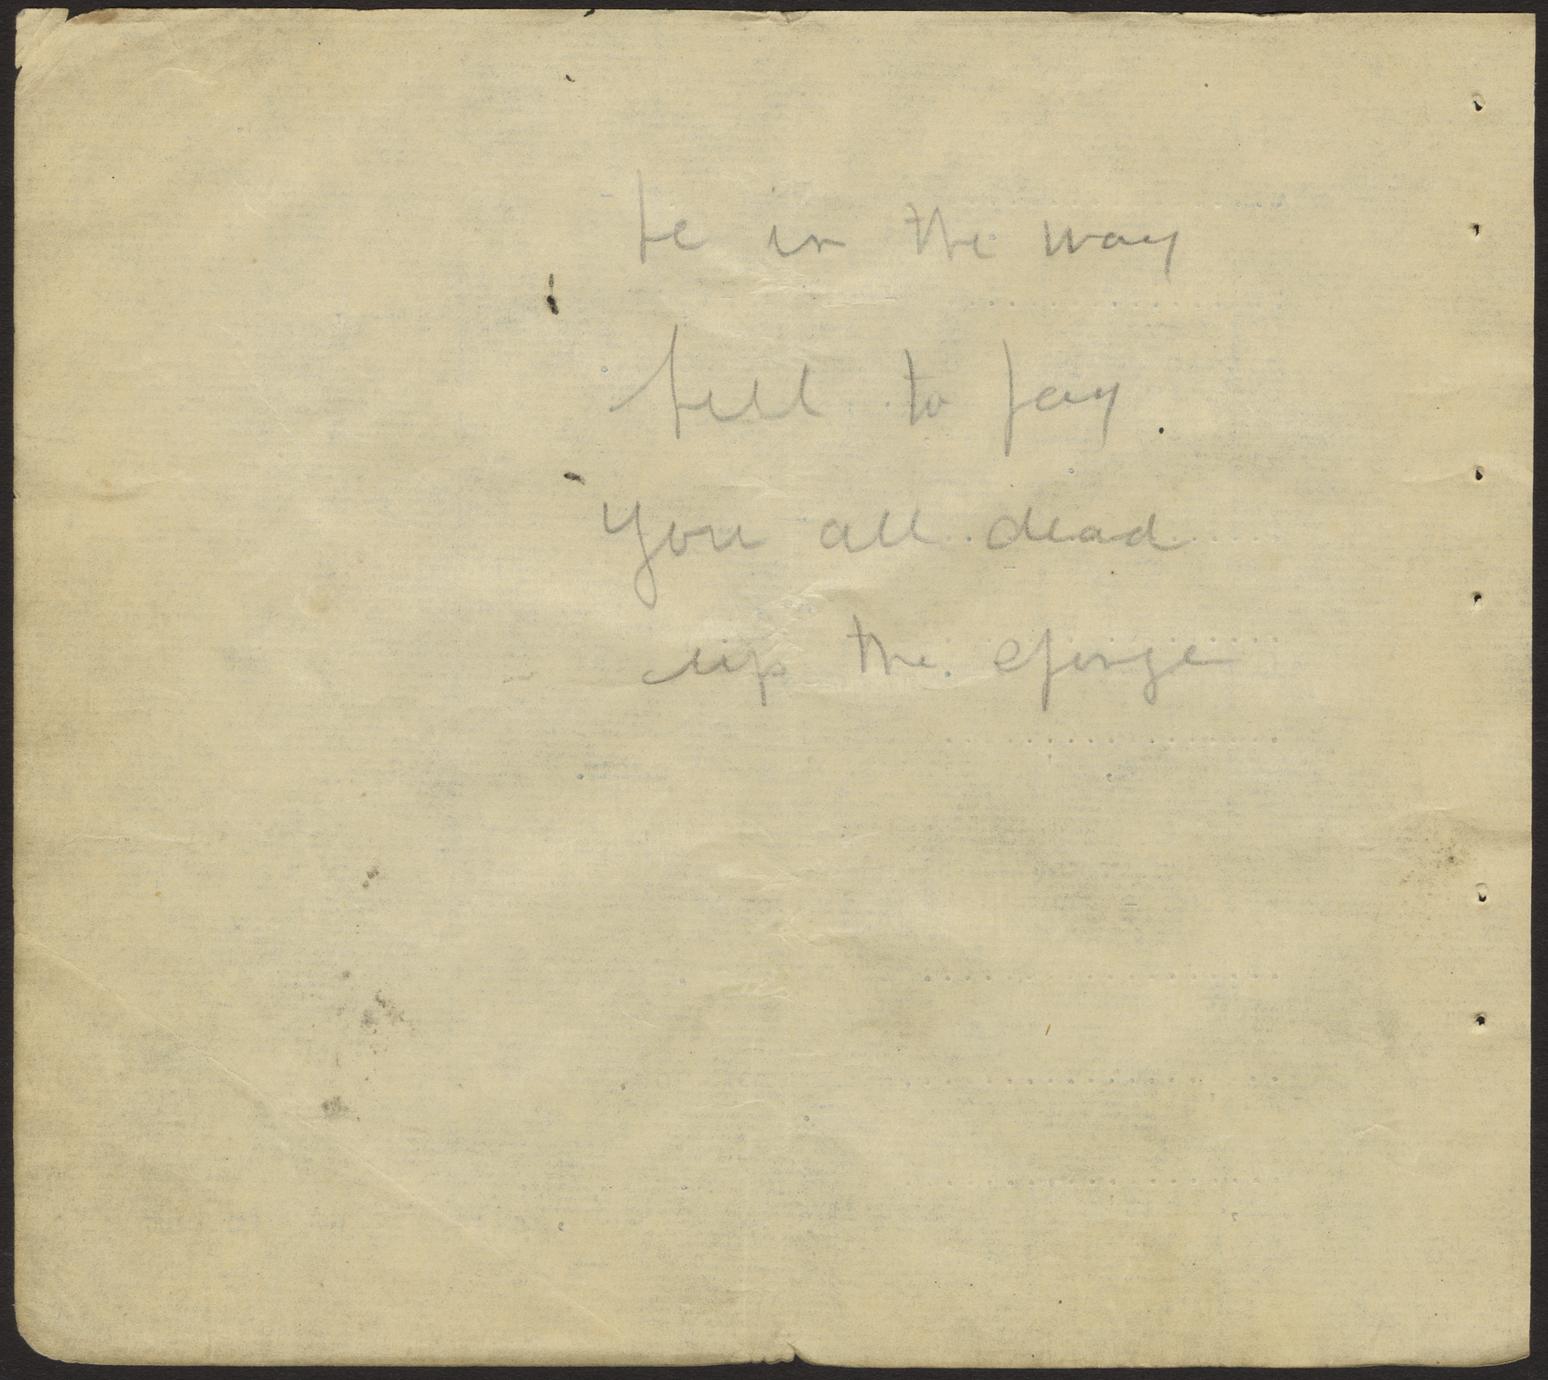 be in the way
bell to pay
you all dead
up the gorge